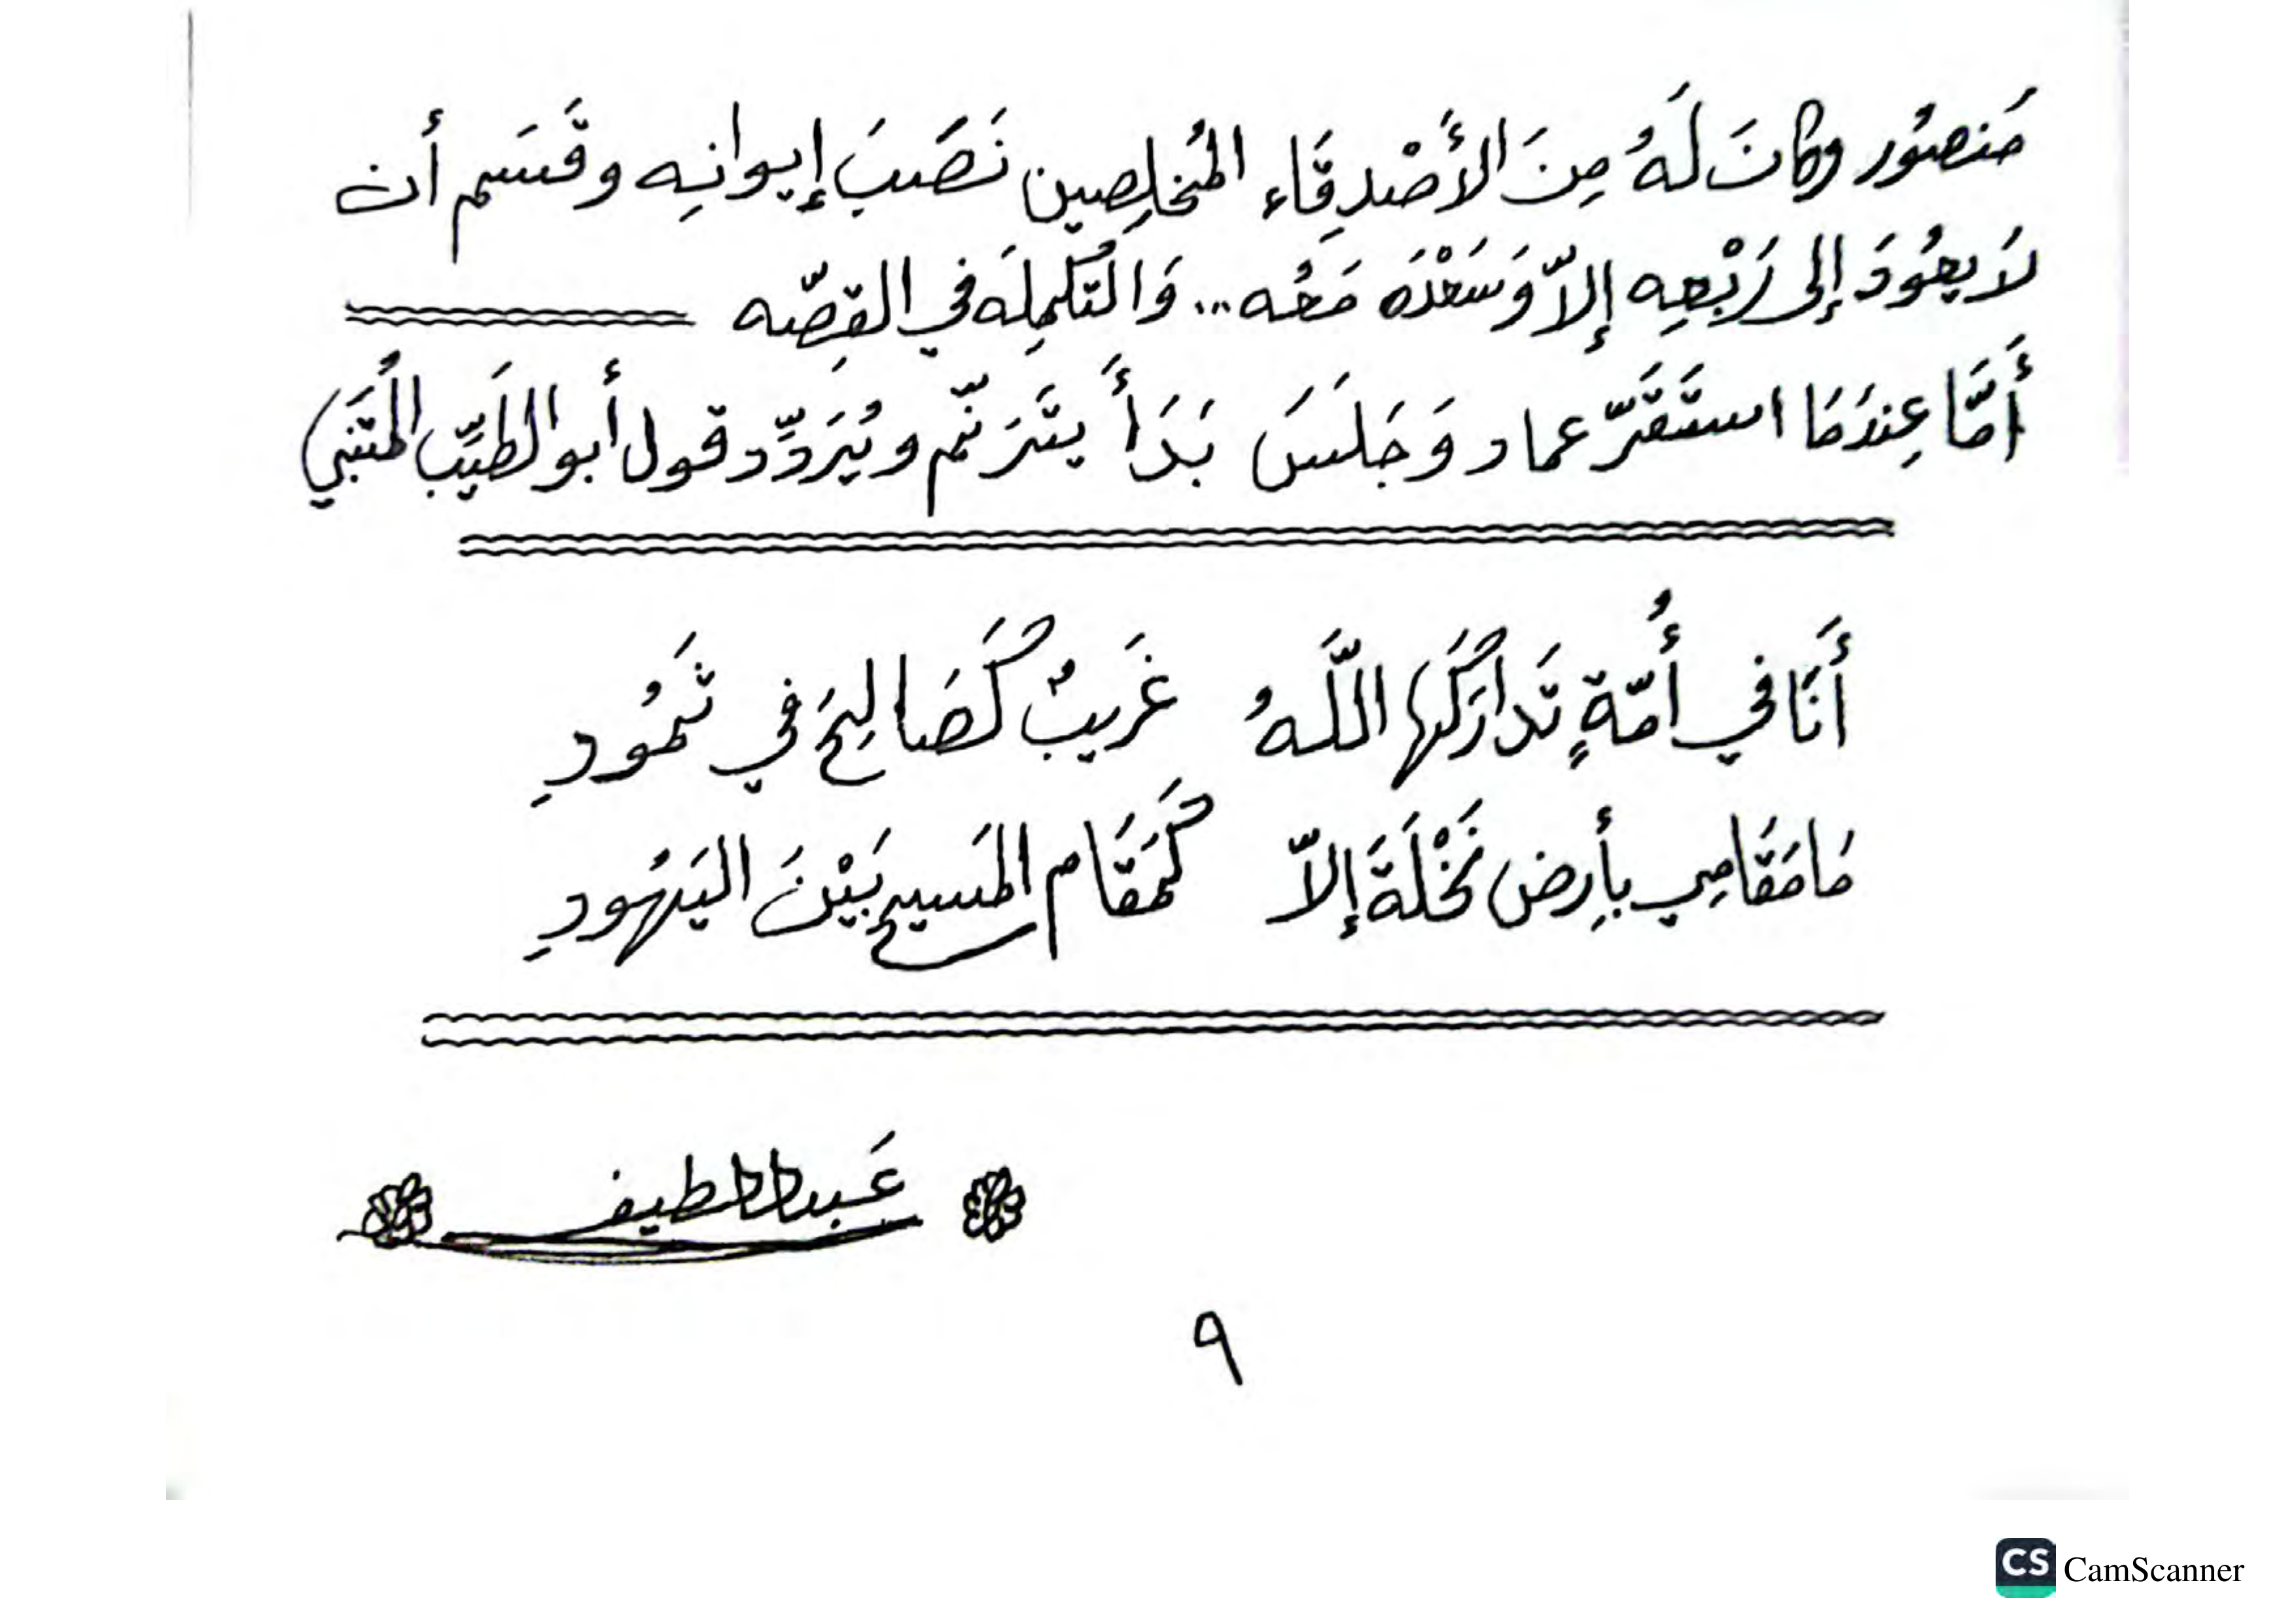 مَنصُور وكانَ لَهُ مِنَ الأَصْدِقَاء المُخلِصِين نَصَبَ إيوانِه وقَسَم أن
لاَ يعُودَ إلى رَبْعِه إلاّ وَسَعْدَه مَعُه... وَالتُكمِلَه في القِصّه
أَمَّا عِندَمَا استَقَرّ عماد وَجَلَسَ بَدَأَ يتَرَنّم ويُرَدِّد قول أبو الطَيِّب المُتَنَبي)
أَنَا في أُمّةٍ تَدارَكَها اللَّهُ غَرِيبٌ كَصَالِحَ في ثَمُودِ
مَا مَقَامِي بأرِض نَخْلَةَ إلاّ كَمَقَام المَسيح بَيْنَ اليَهُودِ
عَبداللطيف
٩
CS CamScanner